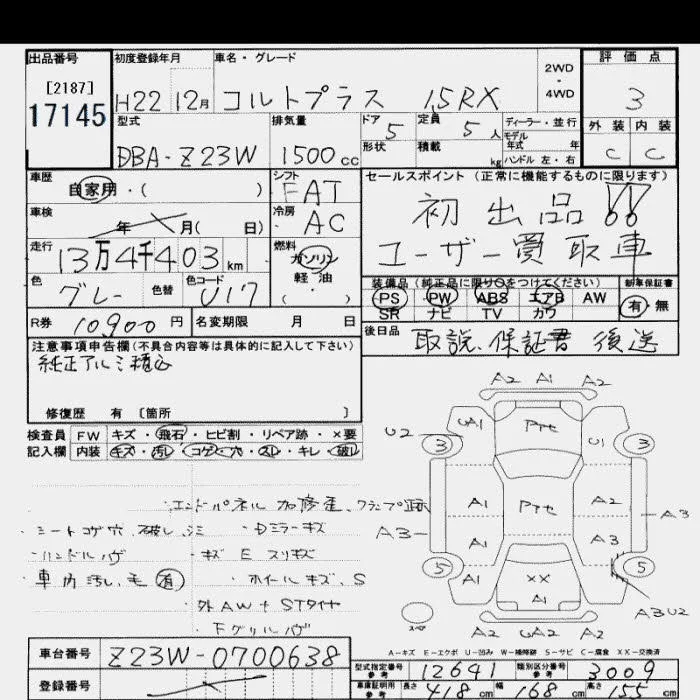 出品番号 初度登録年月 車名・グレード 2WD・4WD 評価点
[2187]
17145
H22 12月 コルトプラス 1.5RX 3
型式 排気量 ドア 5 定員 5 人 ディーラー・並行 外装 内装
形状 積載 kg モデル年式 年
ハンドル 左・右
DBA-Z23W 1500cc C C
車歴 シフト セールスポイント(正常に機能するものに限ります)
自家用・( ) FAT 初出品!!
車検 冷房
年 月( 日) AC ユーザー買取車
走行 燃料
13万4千403km ガソリン
軽油
( )
装備品(純正品に限り○をつけてください) 新車保証書
色 グレー 色替 色コード U17
PS PW ABS エアB AW 有・無
SR ナビ TV カワ
R券 10900円 名変期限 月 日 後日品 取説、保証書 後送
注意事項申告欄(不具合内容等は具体的に記入して下さい)
純正アルミ積込
修復歴 有 〔箇所 〕
検査員 FW キズ・飛石・ヒビ割・リペア跡・×要
記入欄 内装 キズ・汚レ・コゲ・穴・スレ・キレ・破レ
A2 A1 A2
U2 UA1 Pᴀte U1
3 3
A1 Pᴀte A2
A3 A3 A3
5 A1 XX A1 5
A1
A3U2
A2 UA2 A2
・エンドパネル加修歪、クランプ跡
・シートコゲ穴、破レ、シミ ・Dミラーキズ
・ハンドルハゲ ・キズ E スリキズ
・車内汚レ、毛 有 ・ホイールキズ、S
・外AW+STタイヤ
・Fグリルハゲ
A-キズ E-エクボ U-凹み W-補修跡 S-サビ C-腐食 XX-交換済
車台番号 Z23W-0700638
登録番号
型式指定番号 参考 12641 類別区分番号 参考 3009
車庫証明用 参考 長さ 418 cm 幅 168 cm 高さ 155 cm